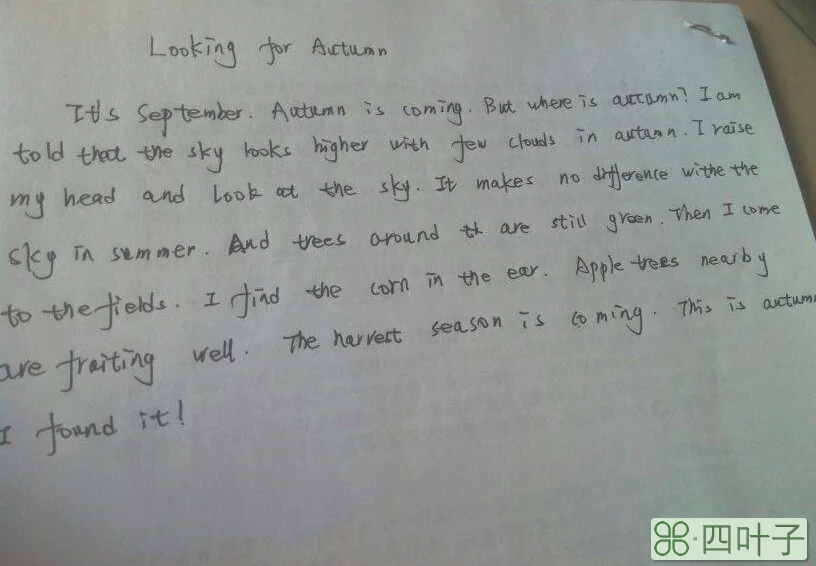 Looking for Autumn
It's September. Autumn is coming. But where is autumn? I am
told that the sky looks higher with few clouds in autumn. I raise
my head and look at the sky. It makes no difference withe the
sky in summer. And trees around are still green. Then I come
to the fields. I find the corn in the ear. Apple trees nearby
are fraiting well. The harvest season is coming. This is autumn
I found it!
四叶子